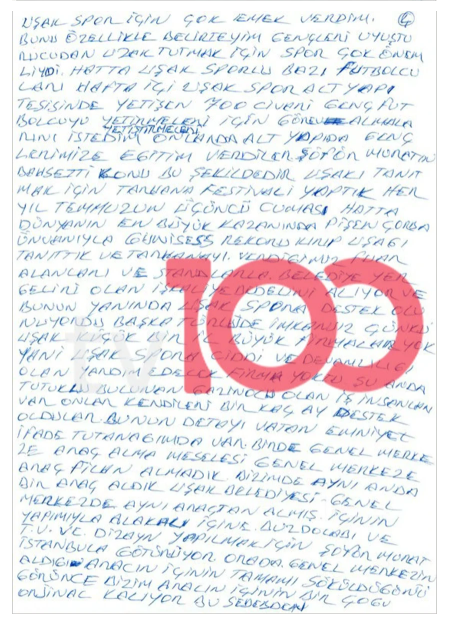 UŞAK SPOR İÇİN ÇOK EMEK VERDİM. 4
BUNU ÖZELLİKLE BELİRTEYİM GENÇLERİ UYUŞTU
RUCUDAN UZAK TUTMAK İÇİN SPOR ÇOK ÖNEM
LİYDİ. HATTA UŞAK SPORLU BAZI FUTBOLCU
LARI HAFTA İÇİ UŞAK SPOR ALT YAPI
TESİSİNDE YETİŞEN 700 CİVARI GENÇ FUT
BOLCUYU YETİRMELERİ İÇİN GÖREV ALMALA
YETİŞTİRMELERİ
RINI İSTEDİM ONLARDA ALT YAPIDA GENÇ
LERİMİZE EĞİTİM VERDİLER ŞÖFÖR MURATIN
BAHSETTİ KONU BU ŞEKİLDEDİR UŞAKI TANIT
MAK İÇİN TARHANA FESTİVALİ YAPTIK HER
YIL TEMMUZUN ÜÇÜNCÜ CUMASI HATTA
DÜNYANIN EN BÜYÜK KAZANINDA PİŞEN ÇORBA
ÜNVANIYLA GUNİSESS REKORU KIRIP UŞAĞI
TANITTIK VE TARHANAYI. VERDİĞİMİZ FUAR
ALANLARI VE STANDLARLA BELEDİYE YER
GELİRİ OLAN İŞGAL BEDELİNİ ALIYOR VE
BUNUN YANINDA UŞAK SPORA DESTEK OLU
NUYORDU BAŞKA TÜRLÜDE İMKANSIZ ÇÜNKÜ
UŞAK KÜÇÜK BİR İL BÜYÜK FİRMALAR YOK
YANİ UŞAK SPORA CİDDİ VE DEVAMLILIĞI
OLAN YARDIM EDECEK FİRMA YOKTU ŞU ANDA
TUTUKLU BULUNAN GAZİNOCU OLAN İŞ İNSANLARI
VAR ONLAR KENDİLERİ BİR KAÇ AY DESTEK
OLDULAR. BUNUN DETAYI VATAN EMNİYET
İFADE TUTANAĞIMDA VAR. BİRDE GENEL MERKE
ZE ARAÇ ALMA MESELESİ GENEL MERKEZE
ARAÇ FİLAN ALMADIK BİZİMDE AYNI ANDA
BİR ARAÇ ALDIK UŞAK BELEDİYESİ - GENEL
MERKEZDE AYNI ARAÇTAN ALMIŞ İÇİNİN
YAPIMIYLA ALAKALI İÇİNE BUZDOLABI VE
T.V. VE DİZAYN YAPILMAK İÇİN ŞÖFÖR MURAT
İSTANBULA GÖTÜRÜYOR ORADA GENEL MERKEZİN
ALDIĞI ARACIN İÇİNİN TAMAMI SÖKÜLDÜĞÜNÜ
GÖRÜNCE BİZİM ARACIN İÇİNİN BİR ÇOĞU
ORJİNAL KALIYOR BU SEBEBDEN
tv100